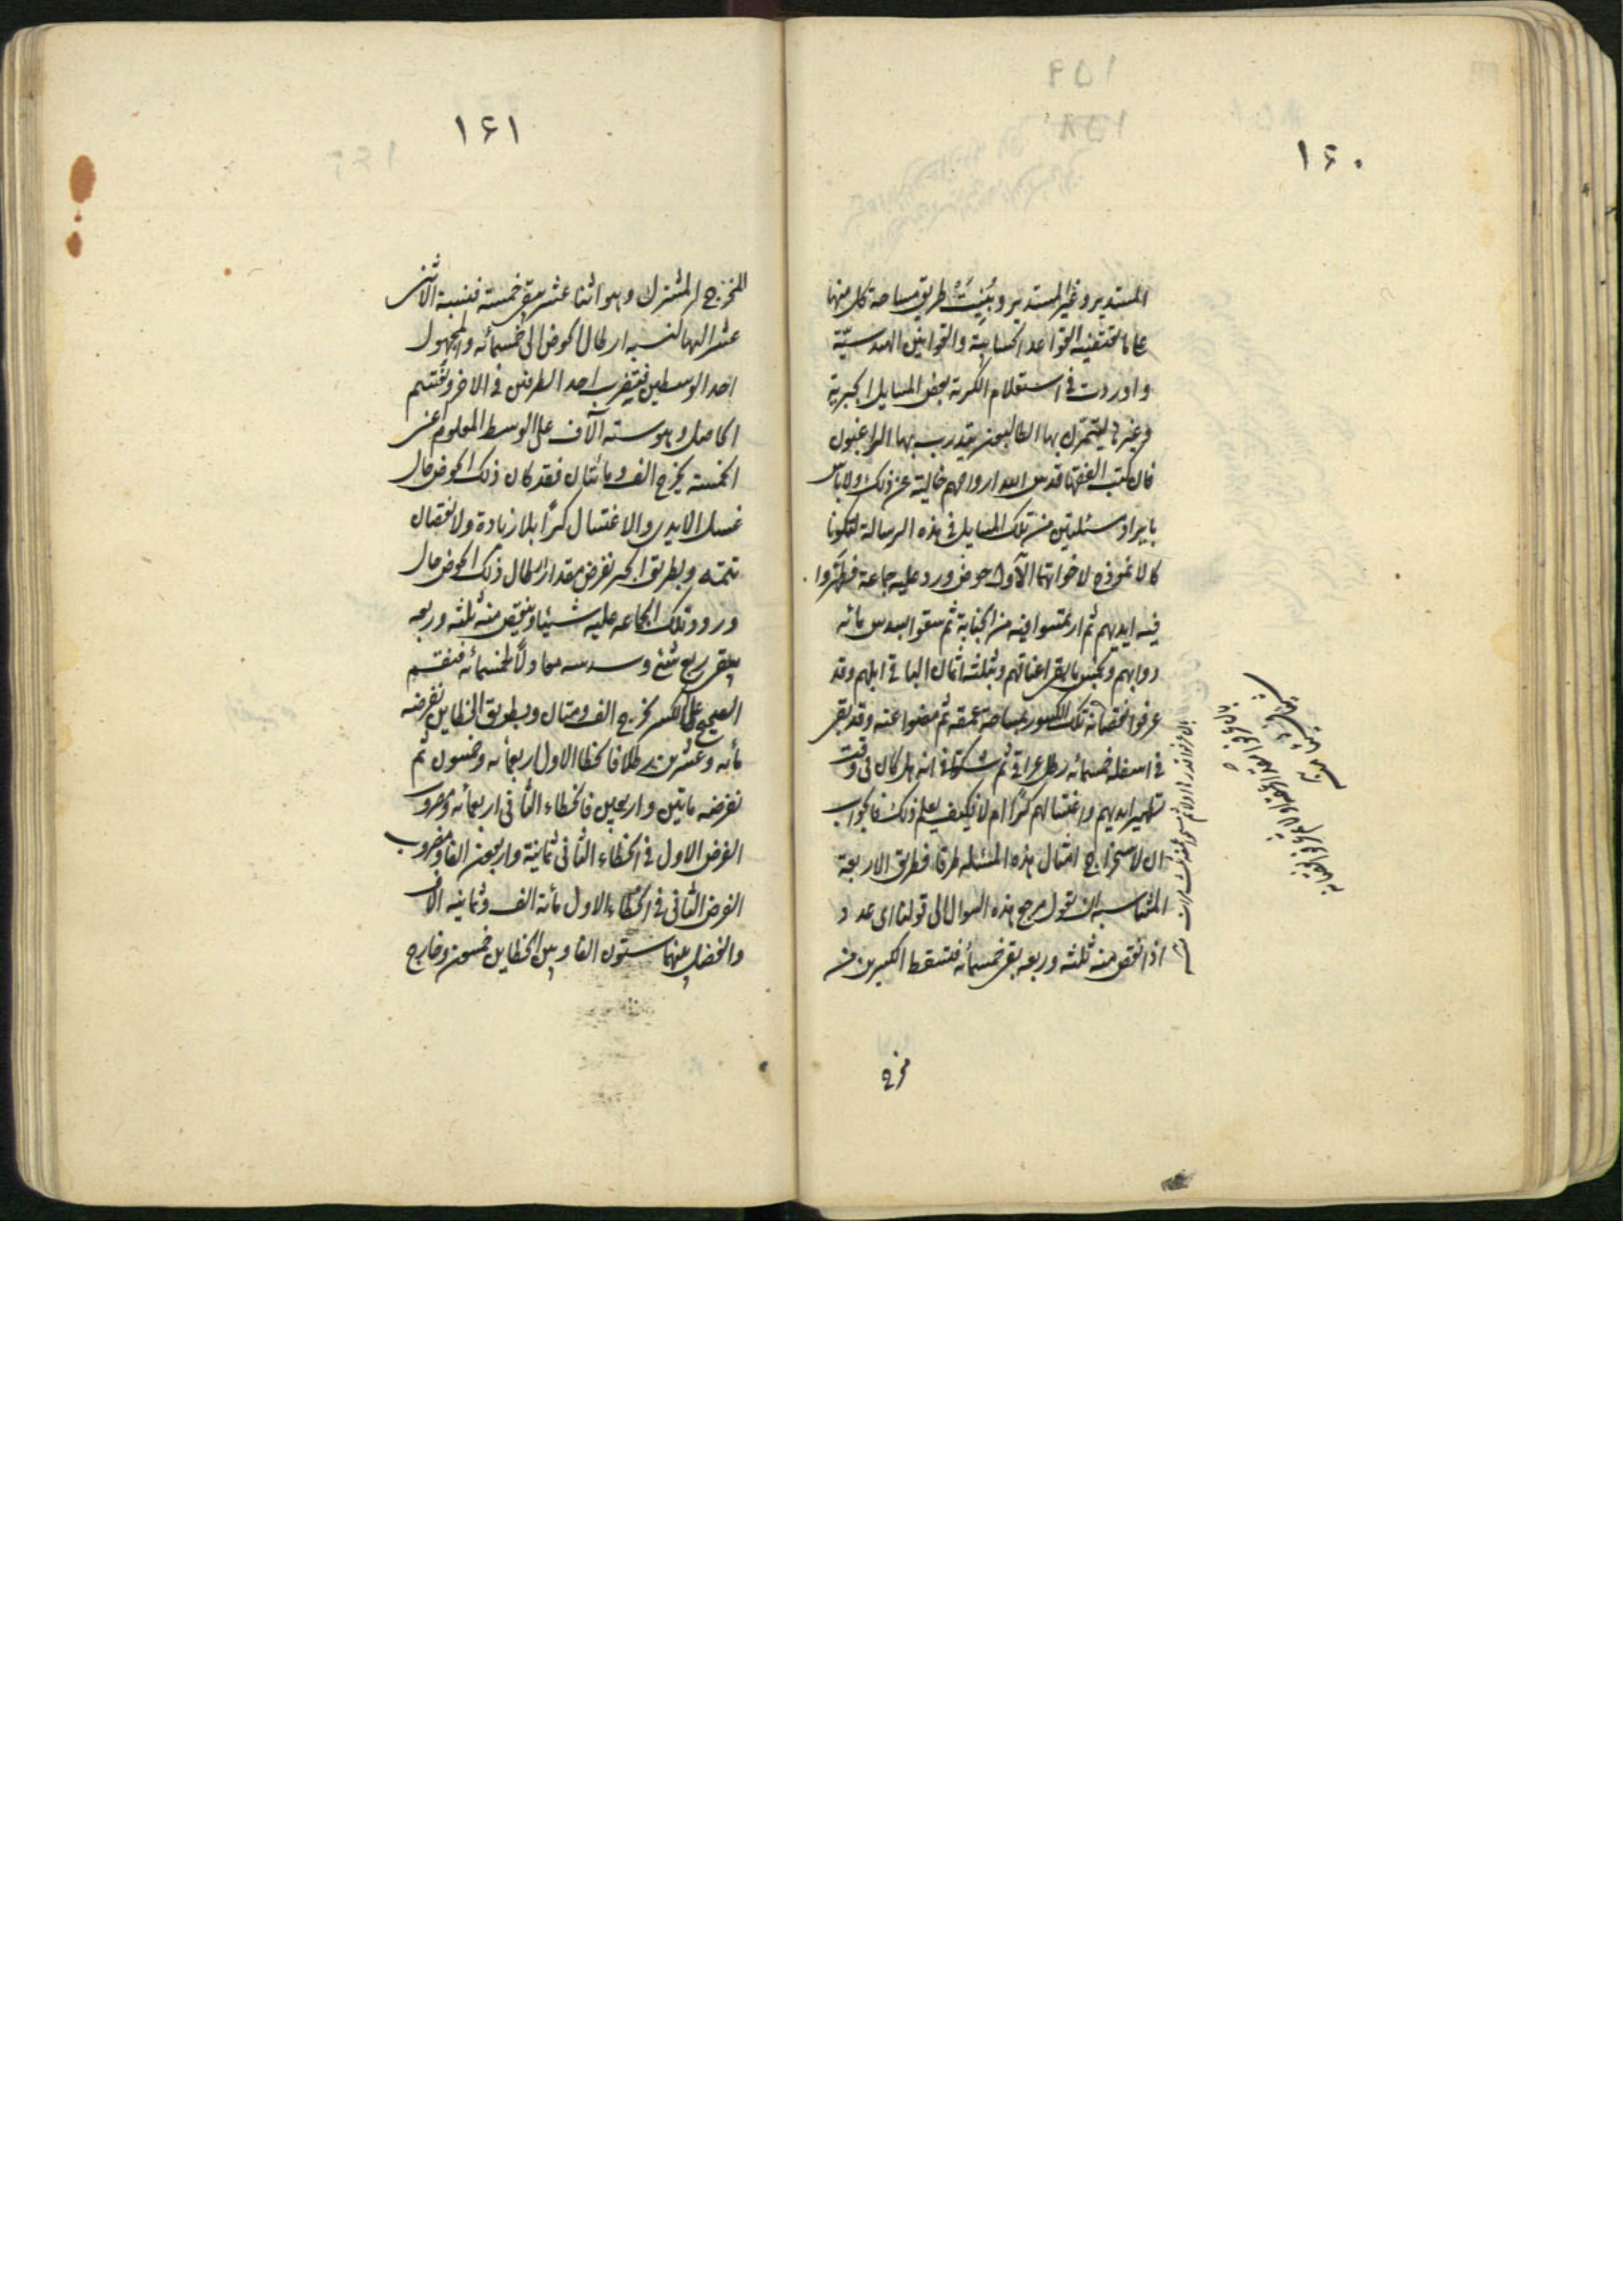 ١۶٠
المستدير وغير المستدير وبينت طريق مساحة كل منها
على ما تقتضيه القواعد الحسابية والقوانين الهندسية
واوردت في استعلام الكرية بعض المسايل الجبرية
وغيرها ليتمرن بها الطالبون ويتدرب بها الراغبون
فان كتب الفقهاء قدس الله ارواحهم خالية عن ذلك ولا باس
بايراد مسئلتين من تلك المسايل في هذه الرسالة لتكونا
كالانموذج لاخواتهما الاول حوض ورد عليه جماعة فطهروا
فيه ايديهم ثم ارتمسوا فيه من الجنابة ثم سقوا بسدس مائه
دوابهم وبخمس ما بقى اغنامهم وبثلثة اثمان الباقي ابلهم وقد
عرفوا نقصانه تلك الكسور بمساحة عمقه ثم مضوا عنه وقد بقى
في اسفله خمسمائه رطل عراقي ثم شكوا في انه هل كان في وقت
تطهير ايديهم واغتسالهم كرا ام لا فكيف يعلم ذلك فالجواب
ان لاستخراج امثال هذه المسئله طرقا فطريق الاربعة
المتناسبه ان نقول مرجع هذه السوال الى قولنا اى عدد
اذا نقص منه ثلثه وربعه بقى خمسمائه فتسقط الكسرين من
مخرج
١۶١
المخرج المشترك وهو اثنا عشر يبقى خمسة فنسبة الاثنى
عشر اليها كنسبه ارطال الحوض الى خمسمائه والمجهول
احد الوسطين فيضرب احد الطرفين في الاخر ونقسم
الحاصل وهو سته آلاف على الوسط المعلوم عنى
الخمسه يخرج الف ومائتان فقد كان ذلك الحوض حال
غسل الايدى والاغتسال كرا بلا زيادة ولا نقصان
تتمته وبطريق الجبر نفرض مقدار ارطال ذلك الحوض حال
ورود تلك الجماعه عليه شيئا وينقص منه ثلثه وربعه
يبقى ربع شئ وسدسه معادلا لخمسمائه فنقسم
الصحيح على الكسر يخرج الف ومئتان وبطريق الخطاين نفرضه
مأيه وعشرين رطلا فالخطا الاول اربعمأيه وخمسون ثم
نفرضه ماتين واربعين فالخطاء الثاني اربعمائه ومضروب
الفرض الاول في الخطاء الثانى ثمانية واربعون الفا ومضروب
الفرض الثانى في الخطاء الاول مأئة الف وثمانيه الاف
والفضل بينهما ستون الفا وبين الخطاين خمسون وخارج